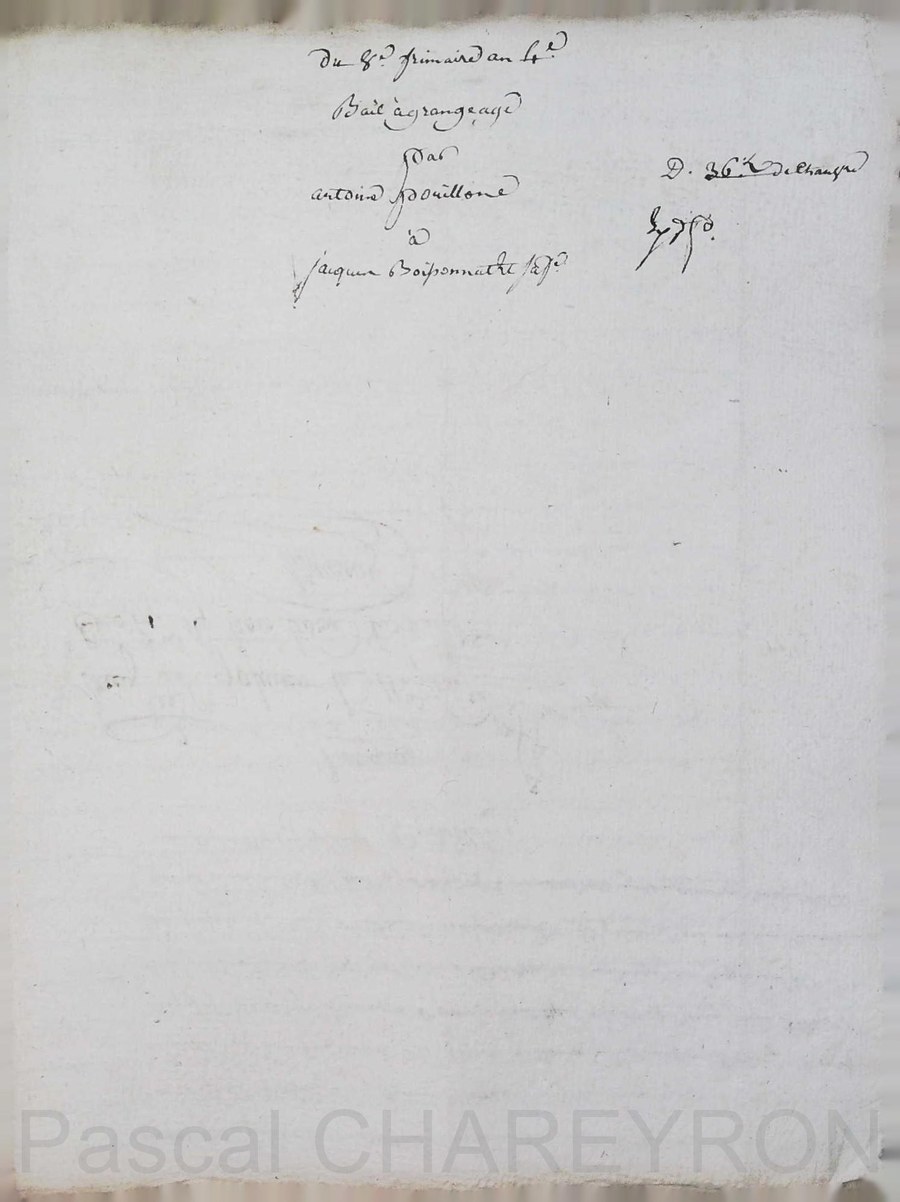 du 8e frimaire an 4e
Bail à grangeage
par
antoine pouillone
à
jacques Boissonnat
D. 36 de Change
Pascal CHAREYRON